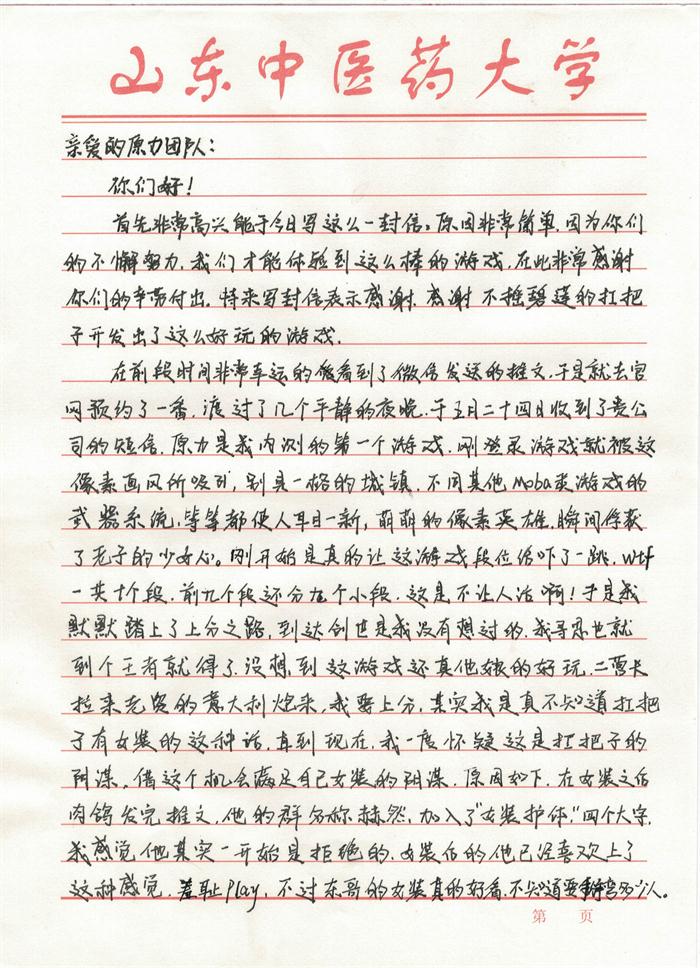 山东中医药大学
亲爱的原力团队:
你们好!
首先非常高兴能于今日写这么一封信。原因非常简单.因为你们
的不懈努力.我们才能体验到这么棒的游戏.在此非常感谢
你们的辛劳付出.特来写封信表示感谢.感谢 不推碧莲的扛把
子开发出了这么好玩的游戏.
在前段时间非常幸运的能看到了微信发送的推文.于是就去官
网预约了一番.渡过了几个平静的夜晚.于五月二十四日收到了贵公
司的短信.原力是我内测的第一个游戏.刚登录游戏就被这
像素画风所吸引,别具一格的城镇.不同其他Moba类游戏的
武器系统,等等都使人耳目一新,萌萌的像素英雄.瞬间俘获
了老子的少女心。刚开始是真的让这游戏段位给吓了一跳.wtf
一共十个段.前九个段还分五个小段.这是不让人活啊!于是我
默默踏上了上分之路,到达创世是我没有想过的.我寻思也就
到个王者就得了.没想到这游戏还真他娘的好玩.二营卡
拉来克资的意大利炮来,我要上分,其实我是真不知道扛把
子有女装的这种话,直到现在.我一度怀疑这是扛把子的
阴谋.借这个机会满足自己女装的阴谋.原因如下.在女装之后
肉鸽发完推文.他的群名称赫然,加入了"女装护体"四个大字.
我感觉他其实一开始是拒绝的.女装后的他已经喜欢上了
这种感觉.羞耻Play,不过东哥的女装真的好看.不知道要掰弯多少人。
第 页